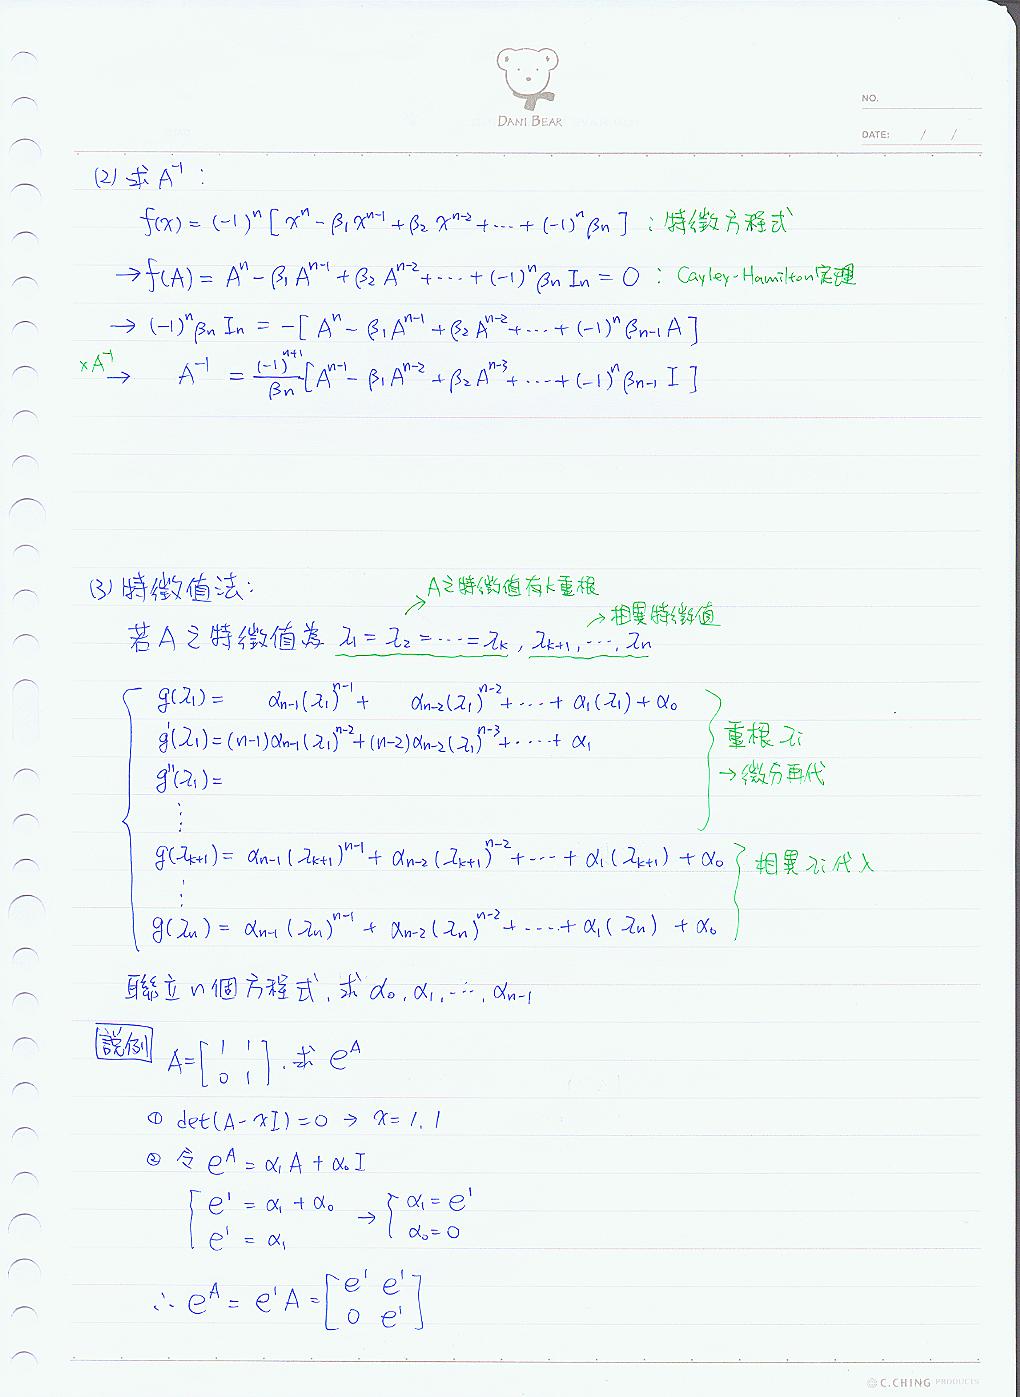 DANI BEAR
NO.
DATE: / /
(2) 求 A⁻¹ :
f(x) = (-1)ⁿ [ xⁿ - β₁xⁿ⁻¹ + β₂ xⁿ⁻² + ··· + (-1)ⁿ βₙ ] : 特徵方程式
→ f(A) = Aⁿ - β₁ Aⁿ⁻¹ + β₂ Aⁿ⁻² + ··· + (-1)ⁿ βₙ Iₙ = 0 : Cayley-Hamilton定理
→ (-1)ⁿ βₙ Iₙ = -[ Aⁿ - β₁Aⁿ⁻¹ + β₂Aⁿ⁻² + ··· + (-1)ⁿ βₙ₋₁ A ]
×A⁻¹ → A⁻¹ = (-1)ⁿ⁺¹/βₙ [ Aⁿ⁻¹ - β₁Aⁿ⁻² + β₂Aⁿ⁻³ + ··· + (-1)ⁿ βₙ₋₁ I ]
(3) 特徵值法 :
→ A之特徵值有k重根
→ 相異特徵值
若 A 之特徵值為 λ₁ = λ₂ = ··· = λₖ , λₖ₊₁, ···, λₙ
g(λ₁) = αₙ₋₁(λ₁)ⁿ⁻¹ + αₙ₋₂(λ₁)ⁿ⁻² + ··· + α₁(λ₁) + α₀
g'(λ₁) = (n-1)αₙ₋₁(λ₁)ⁿ⁻² + (n-2)αₙ₋₂(λ₁)ⁿ⁻³ + ··· + α₁
重根 λᵢ
g''(λ₁) =
→ 微分再代
⋮
g(λₖ₊₁) = αₙ₋₁(λₖ₊₁)ⁿ⁻¹ + αₙ₋₂(λₖ₊₁)ⁿ⁻² + ··· + α₁(λₖ₊₁) + α₀
相異 λᵢ 代入
⋮
g(λₙ) = αₙ₋₁(λₙ)ⁿ⁻¹ + αₙ₋₂(λₙ)ⁿ⁻² + ··· + α₁(λₙ) + α₀
聯立 n 個方程式, 求 α₀, α₁, ···, αₙ₋₁
說例
A = [ 1 1
0 1 ] . 求 eᴬ
① det(A - xI) = 0 → x = 1, 1
② 令 eᴬ = α₁ A + α₀ I
{ e¹ = α₁ + α₀ → { α₁ = e¹
e¹ = α₁ α₀ = 0
∴ eᴬ = e¹ A = [ e¹ e¹
0 e¹ ]
C.CHING PRODUCTS